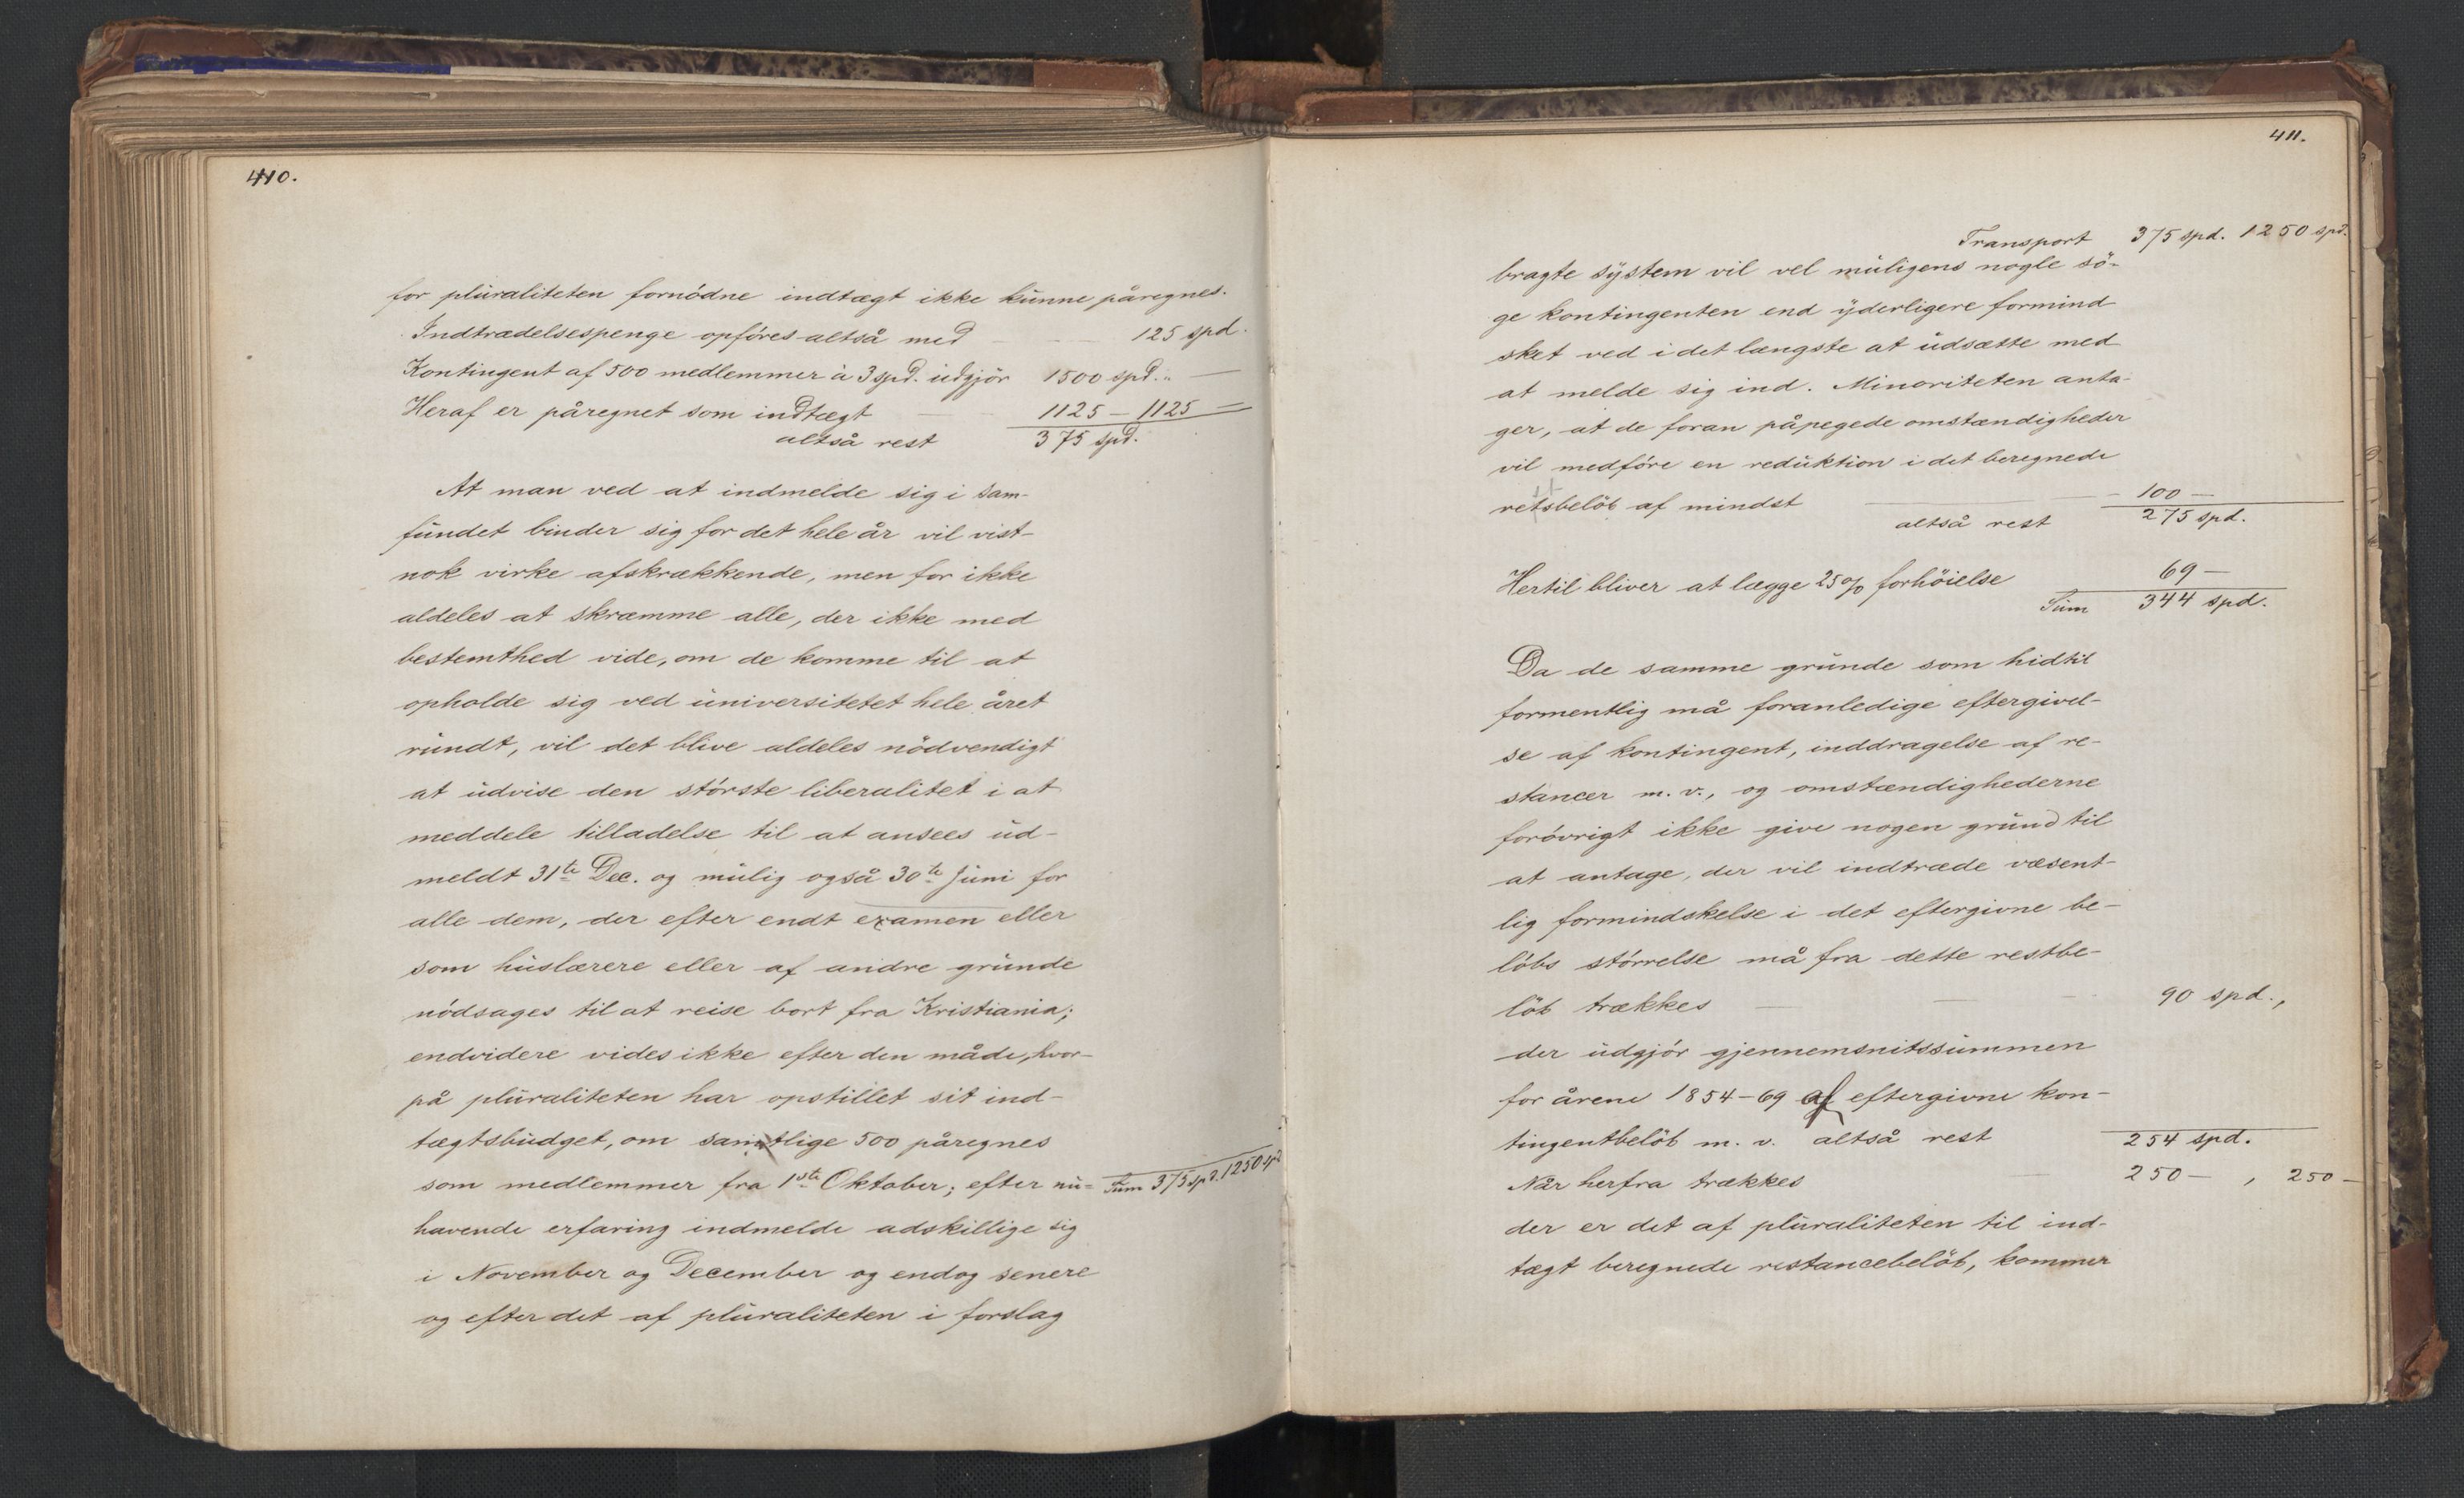 410.
for pluraliteten fornödne indtægt ikke kunne påregnes.
Indtrædelsespenge opföres altså med — — 125 spd.
Kontingent af 500 medlemmer à 3 spd. udgjör 1500 spd. „ —
Heraf er påregnet som indtægt — 1125 — 1125 —
altså rest 375 spd.
At man ved at indmelde sig i sam-
fundet binder sig for det hele år vil vist-
nok virke afskrækkende, men for ikke
aldeles at skræmme alle, der ikke med
bestemthed vide, om de komme til at
opholde sig ved universitetet hele året
rundt, vil det blive aldeles nödvendigt
at udvise den störste liberalitet i at
meddele tilladelse til at ansees ud-
meldt 31te Dec. og mulig også 30te Juni for
alle dem, der efter endt examen eller
som huslærere eller af andre grunde
nödsages til at reise bort fra Kristiania;
endvidere vides ikke efter den måde, hvor-
på pluraliteten har opstillet sit ind-
tægtsbudget, om samtlige 500 påregnes
som medlemmer fra 1ste Oktober; efter nu= Sum 375 spd. 1250 spd
havende erfaring indmelde adskillige sig
i November og December og endog senere
og efter det af pluraliteten i forslag
411.
Transport 375 spd. 1250 spd.
bragte system vil vel muligens nogle sö-
ge kontingenten end yderligere formind
sket ved i det længste at udsætte med
at melde sig ind. Minoriteten anta-
ger, at de foran påpegede omstændigheder
vil medföre en reduktion i det beregnede
retsbelöb af mindst — — 100 —
altså rest 275 spd.
Hertil bliver at lægge 25 % forhöielse 69 —
Sum 344 spd.
Da de samme grunde som hidtil
formentlig må foranledige eftergivel-
se af kontingent, inddragelse af re-
stancer m. v., og omstændighederne
forövrigt ikke give nogen grund til
at antage, der vil indtræde væsent-
lig formindskelse i det eftergivne be-
löbs störrelse må fra dette restbe-
löb trækkes — — — 90 spd.,
der udgjör gjennemsnitssummen
for årene 1854-69 af eftergivne kon-
tingentbelöb m. v. altså rest 254 spd.
Når herfra trækkes — 250 — , 250 —
der er det af pluraliteten til ind-
tægt beregnede restancebelöb, kommer